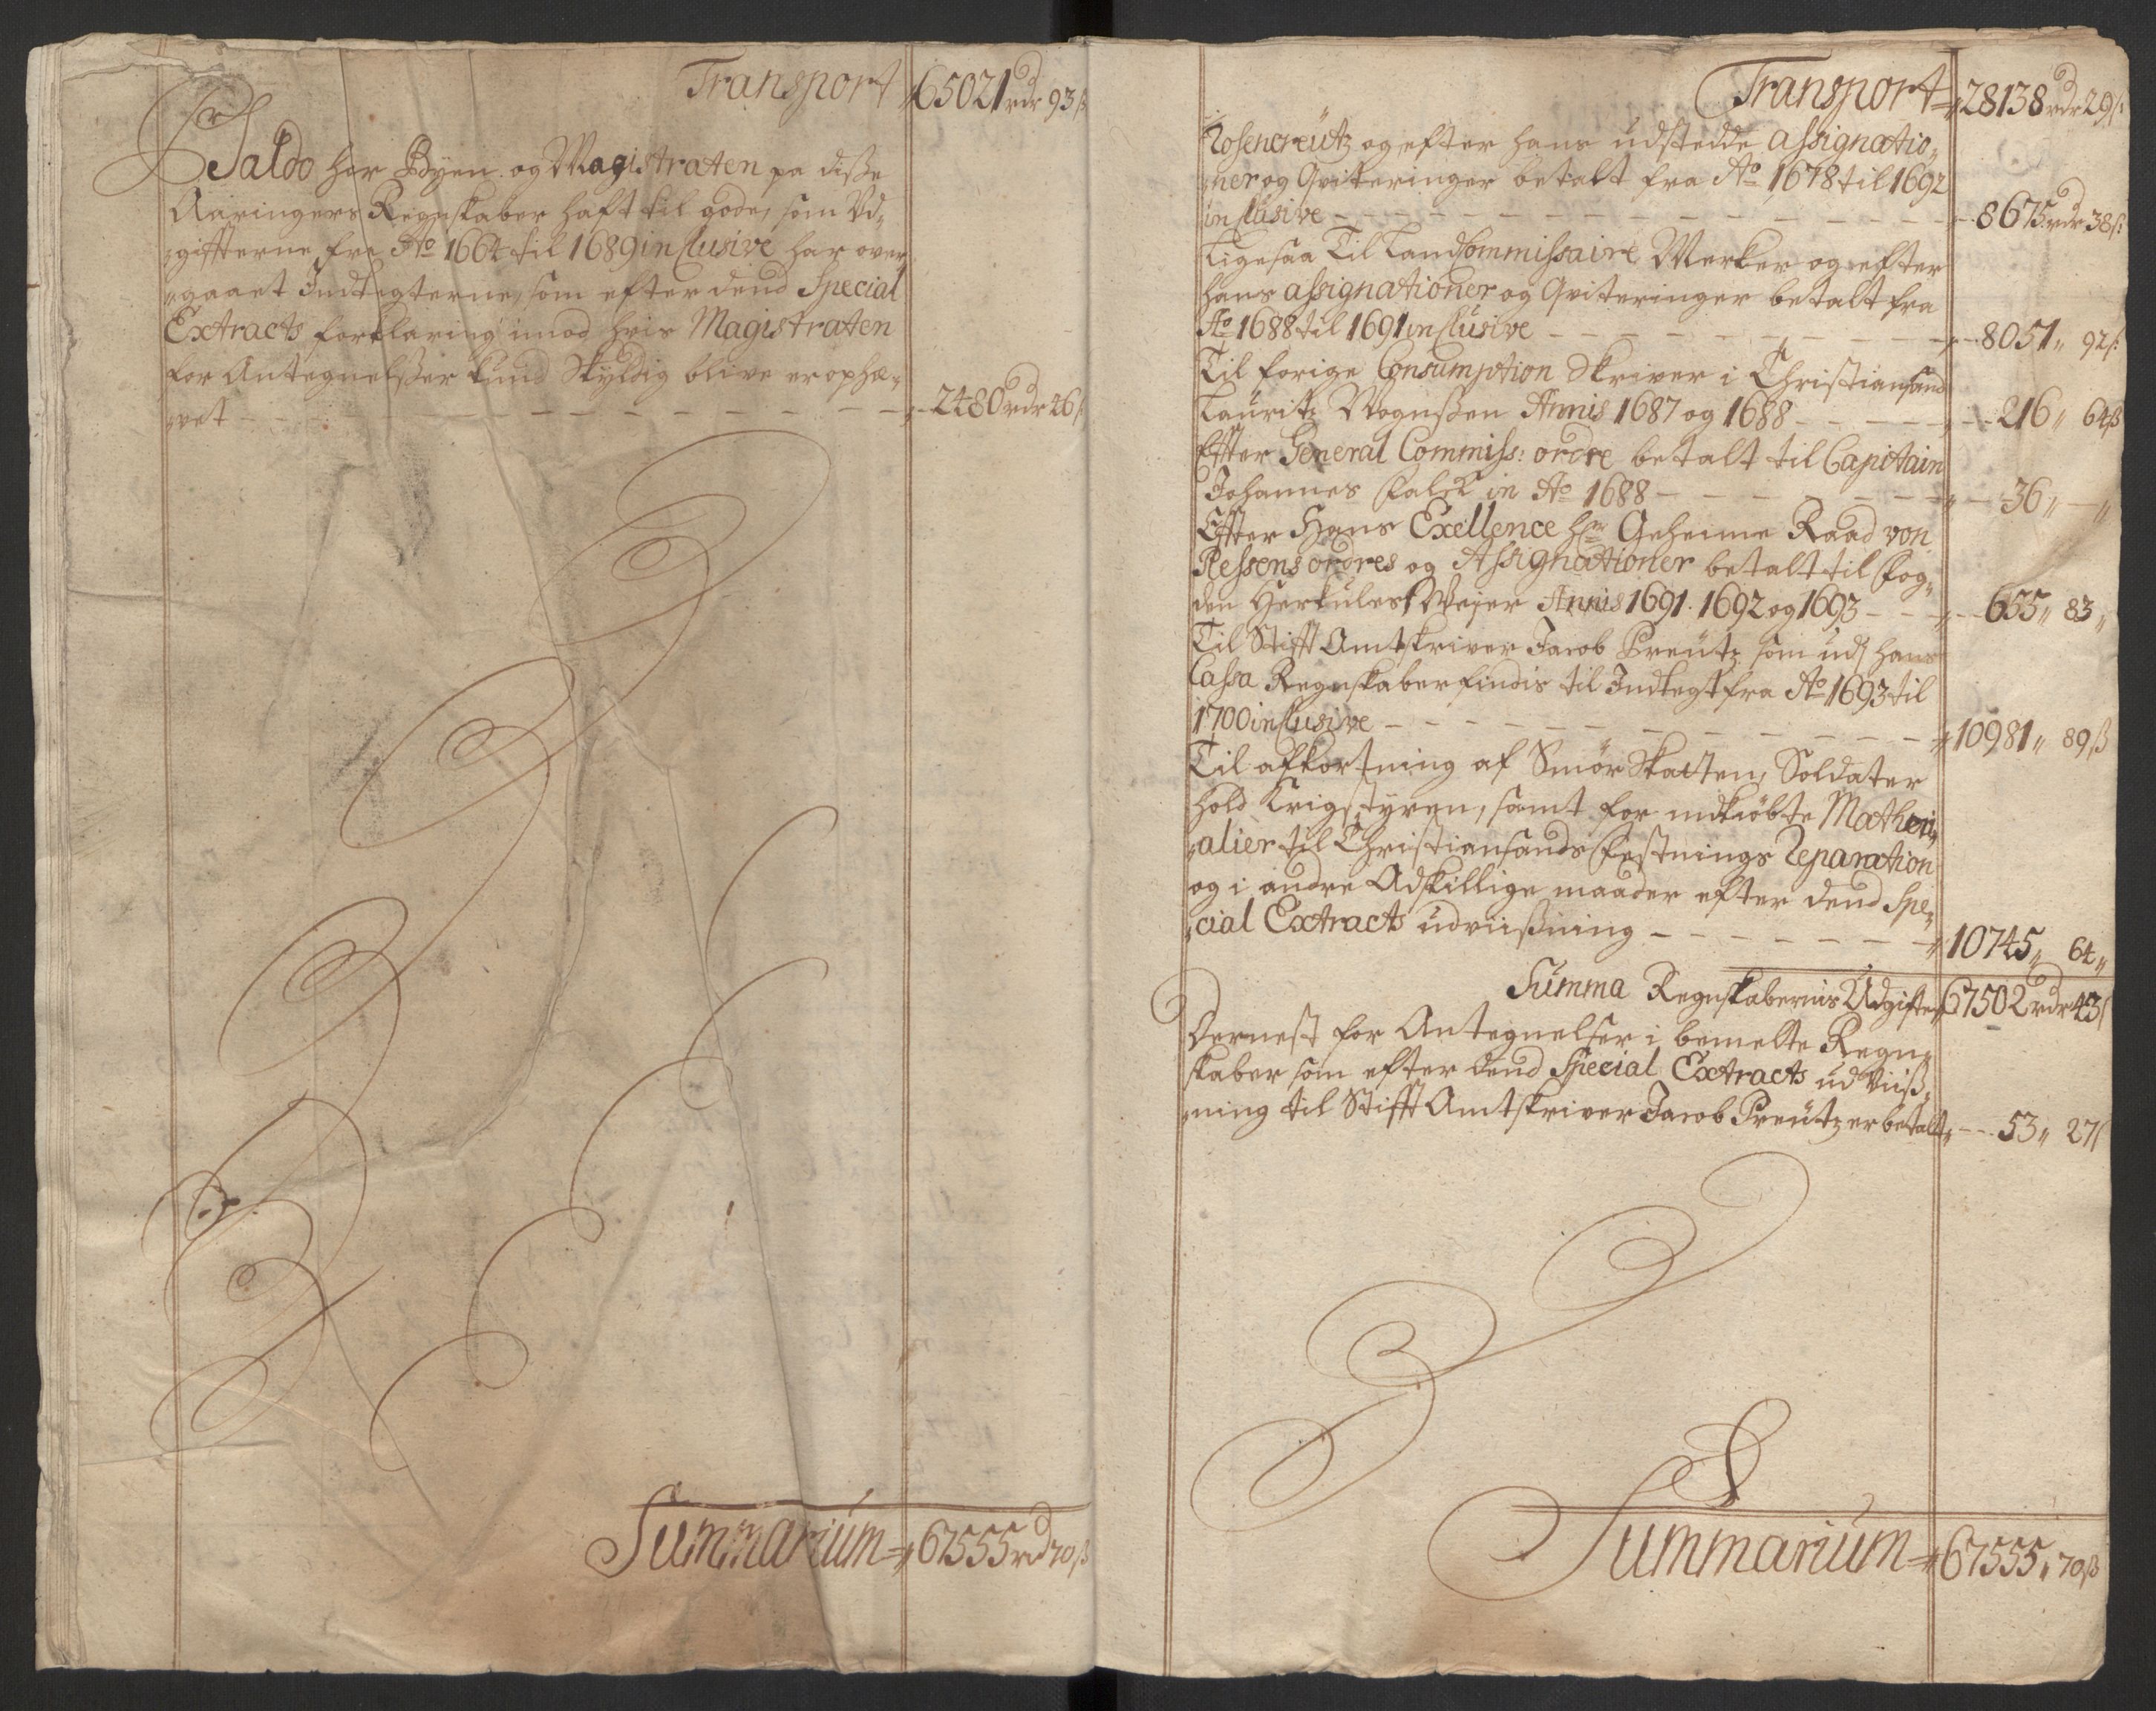 Transport 65021 rdr 93 ß
Pr Saldo har Byen og Magistraten pa disse
Aaringers Regnskaber haft til gode, som Ud„
„giffterne fra Ao 1664 til 1689 inclusive har over„
„gaaet Indtegterne, som efter dend Special
Extracts forklaring imod hvis Magistraten
for Antegnelsser kund Skyldig blive er ophæ„
„vet 2480 rdr 46 ß
Summarium 67555 rd 70 ß
Transport 28138 rdr 29 ß
Rosencreütz og efter hans udstedde assignatio„
„ner og Qviteringer betalt fra Ao 1678 til 1692
inclusive 8675 rdr 38 ß
Ligesaa Til Landcommissaire Werker og efter
hans assignationer og Qviteringer betalt fra
Ao 1688 til 1691 inclusive 8051 „ 92 ß
Til forige Consumption Skriver i Christiansand
Lauritz Mognssen Annis 1687 og 1688 216 „ 64 ß
Efter General Commiss: ordre betalt til Capitain
Johannes Falck in Ao 1688 36 „ — „
Efter Hans Exellence Hr Geheime Raad von
Plessens ordres og Assignationer betalt til Fog„
den Herkules Weyer Annis 1691. 1692 og 1693 655 „ 83 „
Til Stifft Amtskriver Jacob Preutz som udj hans
Cassa Regnskaber findis til Indtegt fra Ao 1693 til
1700 inclusive 10981 „ 89 ß
Til afkortning af Smör Skatten, Soldater
hold Krigstyren, samt for indkiöbte Matheri„
„alier til Christiansands Festnings Reparation
og i andre Adskillige maader efter dend Spe„
„cial Extracts udviissning 10745 „ 64 „
Summa Regnskabernis Udgifter 67502 rdr 43 ß
Dernest for Antegnelser i bemelte Regn„
skaber som efter dend Special Extracts udviiss„
„ning til Stifft Amtskriver Jacob Preutz er betalt 53 „ 27 ß
Summarium 67555 „ 70 ß